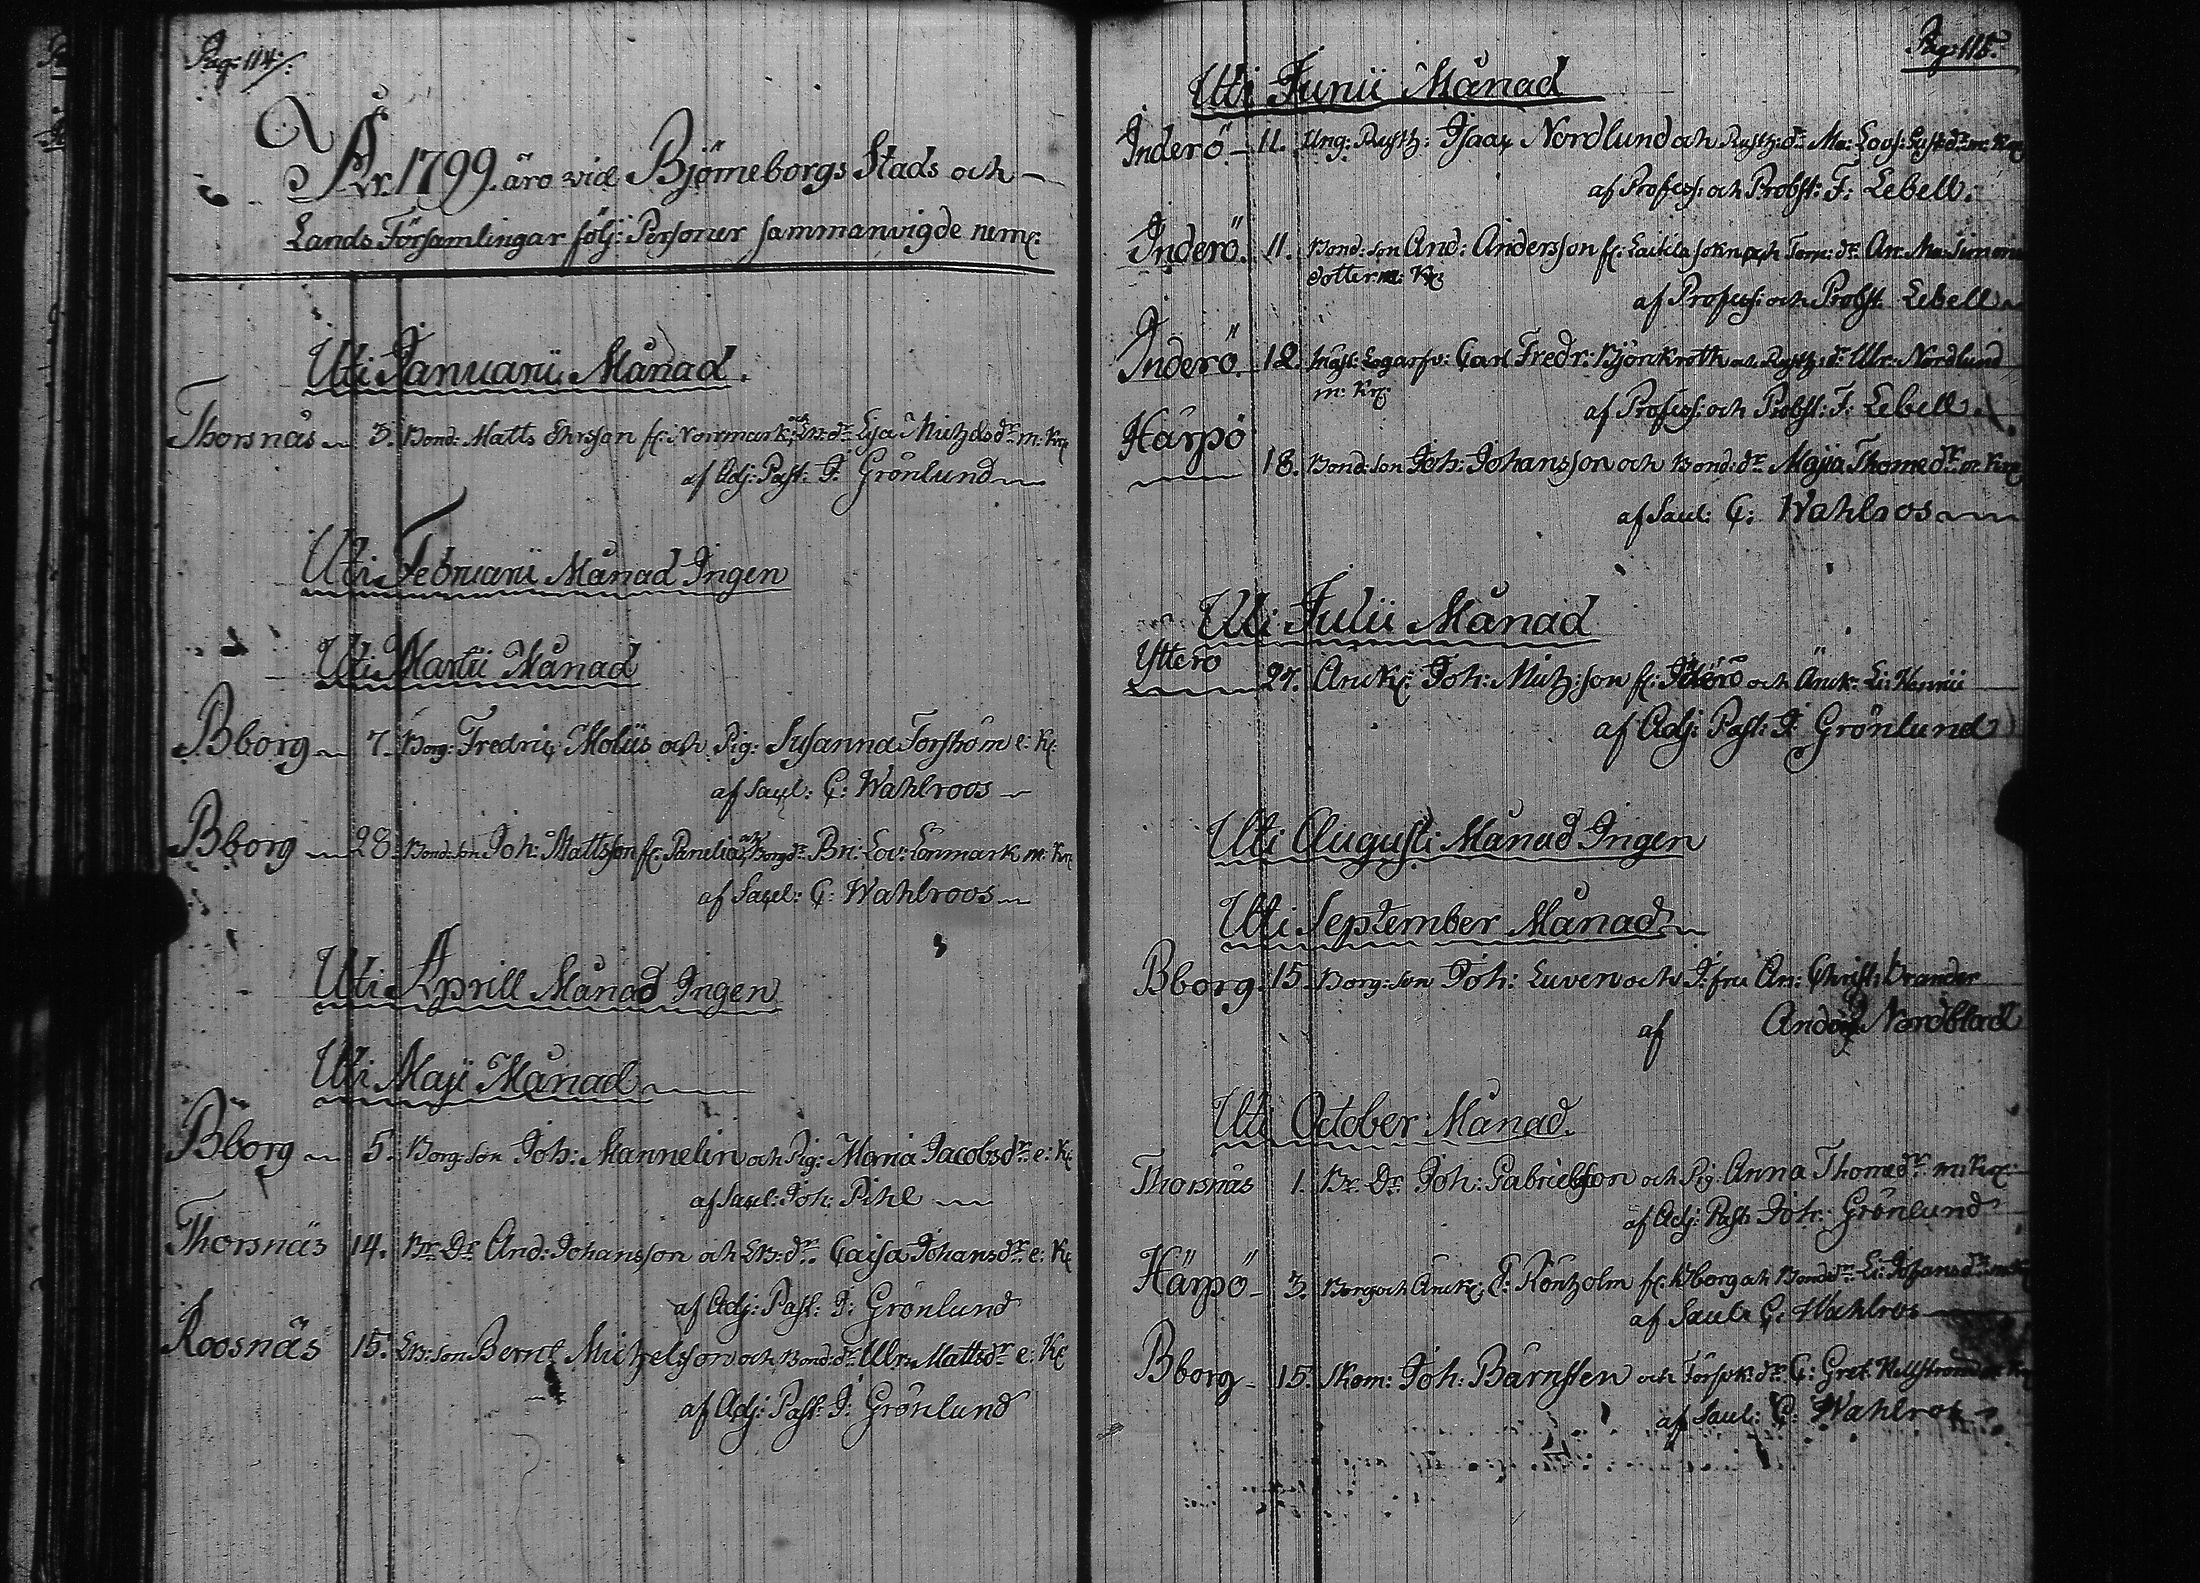 Pag: 114/:
År 1799. äro vid Björneborgs Stads och
Lands Församlingar följ: Personer sammanvigde neml:
Uti Januarii Månad.
Thorsnäs 3. Bond: Matts Ehrsson fr: Norrmark, och LB: dr Lisa Michelsdr m: Kr:
af Adj: Past: J. Grönlund
Uti Februarii Månad Ingen
Uti Martii Månad
Bborg 7. Borg: Fredric Moliis och Pig: Susanna Forström e: Kr:
af Sacel: C: Wahlroos
Bborg 28. Bond: son Joh: Mattsson fr: Panelia och Borg dr Bri: Lov: Lönmark m: Kr:
af Sacel: C: Wahlroos
Uti Aprill Månad Ingen
Uti Maji Månad
Bborg 5. Borg: son Joh: Mannelin och Pig: Maria Jacobsdr e: Kr:
af Sacel: Joh: Pihl
Thorsnäs 14. Br Dr And: Johansson och LB: dr: Caisa Johansdr e: Kr:
af Adj: Past: J: Grönlund
Roosnäs 15. LB: son Bernt Michelsson och Bond: dr Ulr: Mattsdr e: Kr:
af Adj: Past: J: Grönlund
Pag: 115.
Uti Junii Månad
Inderö 11. Ung: Rusth: Isaac Nordlund och Rusth: dr Ma: Lovs: m: Kr:
af Profess: och Probst: F: Lebell.
Inderö. 11. Bond: son And: Andersson fr: Lattila sokn och Torp: dr An: Ma: Simons
dotter m: Kr:
af Profess: och Probst Lebell
Inderö 12. Carl Fredr: Björkroth och Rusth: dr Ulr: Nordlund
m: Kr:
af Profess: och Probst: F: Lebell.
Härpö
18. Bond: son Joh: Johansson och Bond: dr Majia Thomedr m: Kr:
af Sacel: C: Wahlroos
Uti Julii Månad
Ytterö
27. Anck: Joh: Mich: son fr: och Änck: Li:
af Adj: Past: J: Grönlund
Uti Augusti Månad Ingen
Uti September Månad
Bborg 15. Borg: son Joh: Luven och J:fru An: Christ: Brander
af Nordblad
Uti October Månad.
Thorsnäs 1. Br Dr Joh: Gabrielsson och Pig: Anna Thomædr m: Kr:
af Adj: Past: Joh: Grönlund
Härpö 3. Borg och Anck: J: Röntzolm fr: Bborg och Bonde dr Li: Johansdr m: Kr:
af Sacel: C: Wahlros
Bborg 15. Skom: Joh: Bärnsten och Försvk: dr C: Gret: Hellström m: Kr:
af Sacel: C: Wahlros